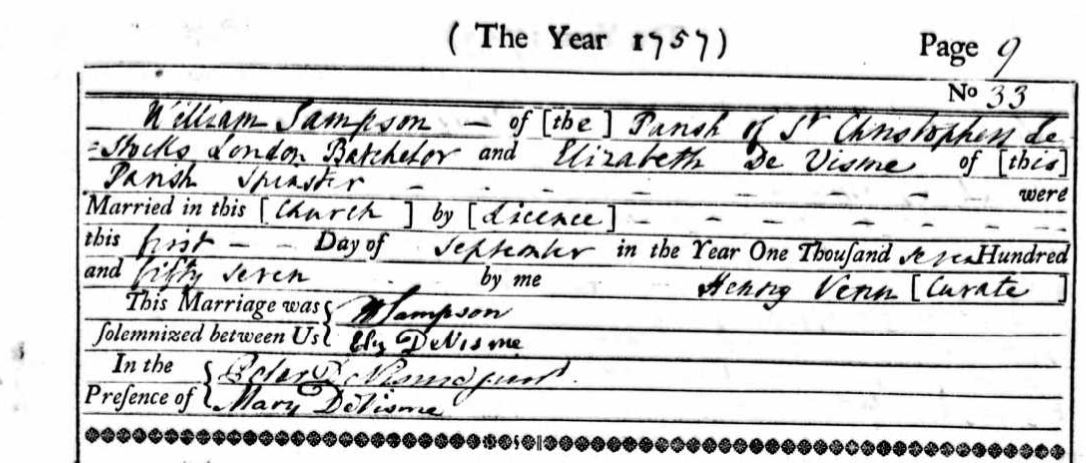 ( The Year 1757) Page 9
No 33
William Sampson — of [the] Parish of St Christophers Le
=Stocks London Batchelor and Elizabeth De Visme of [this]
Parish Spinster - - - - - - - - were
Married in this [Church] by [Licence] - - - - - -
this first - - Day of September in the Year One Thouſand seven Hundred
and fifty seven by me Henry Venn [Curate]
This Marriage was { WSampson
ſolemnized between Us { Eliz DeVisme
In the { Peter DeVisme
Preſence of { Mary DeVisme